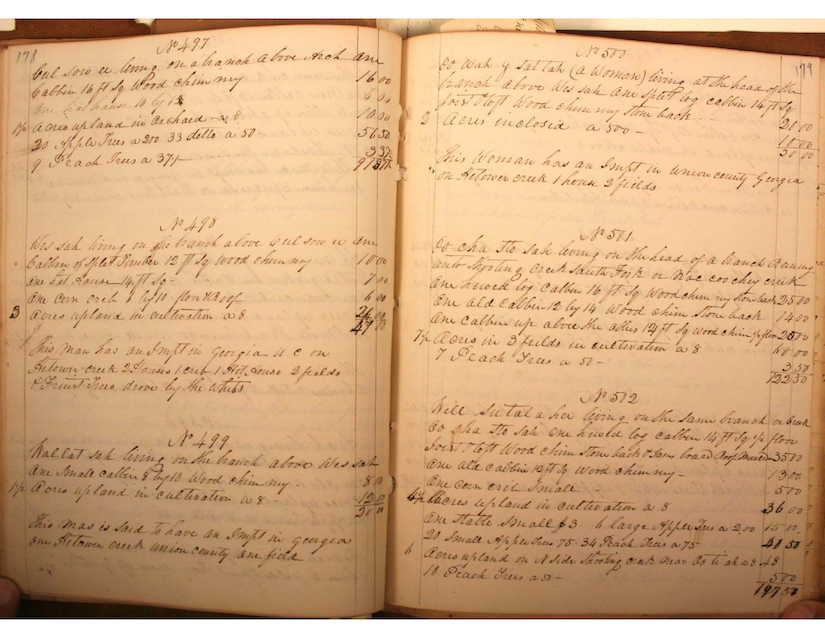 178
No 497
Cul sow ee living on a branch above Arch one
Cabbin 16 ft Sq Wood chimney 16 00
One Hot house 10 by 12 6 00
1½ Acres upland in Orchard a 8 10 00
20 Apple Trees a 200 33 detto a 50 56 50
9 Peach Trees a 37½ 3 37½
91 87½
No 498
Wes sah living on the branch above Cul sow ee one
Cabbin of Split Timber 12 ft Sq Wood chimney 10 00
one hot House 14 ft Sq 7 00
One Corn crib 8 by 10 floor & Roof 6 00
3 Acres upland in cultivation a 8 24 00
47 00
This man has an Impt in georgia U C on
Hetower creek 2 Houses 1 crib 1 Hot House 2 fields
& Fruist Trees drove by the Whits
No 499
Wal lat sah living on the branch above Wes sah
One Small cabbin 8 by 10 Wood chimney 8 00
1½ Acres upland in cultivation a 8 12 00
20 00
This mas is said to have an Impt in georgia
one Hetower creek union county One field
179
No 500
Co wah y sat tah (a Woman) living at the head of the
branch above Wes sah One Split log cabbin 14 ft Sq
Joist & loft Wood chimny Stone back 20 00
2 Acres inclosed a 500 10 00
30 00
This Woman has an Impt in union county Georgia
on Hetower creek 1 house 2 fields
No 501
Co cha sto sah living on the head of a branch Runing
unto Shooting creek South Fork or Nac coochy creek
One hewed log Cabbin 16 ft Sq Wood chimny Stone back 25 00
One old Cabbin 12 by 14 Wood chim Stow back 14 00
One Cabbin up above the others 14 ft Sq Wood chim ½ floor 20 00
7½ Acres in 3 fields in cultivation a 8 60 00
7 Peach Trees a 50 3 50
122 50
No 502
Will living on the same branch or creek
Co cha sto sah one hewed log Cabbin 14 ft Sq ½ floor
Joist & loft Wood chim Stow back board Roof 35 00
One old Cabbin 12 ft Sq Wood chimny 13 00
One Corn crib Small 5 00
4½ Acres upland in cultivation a 8 36 00
One Stable Small $3 6 large Apple Trees a 200 15 00
20 Small Apple Trees 75 34 Peach Trees a 75 40 50
6 Acres upland on N Side Shooting creek near a 8 48
10 Peach Trees a 50 5 00
197 50